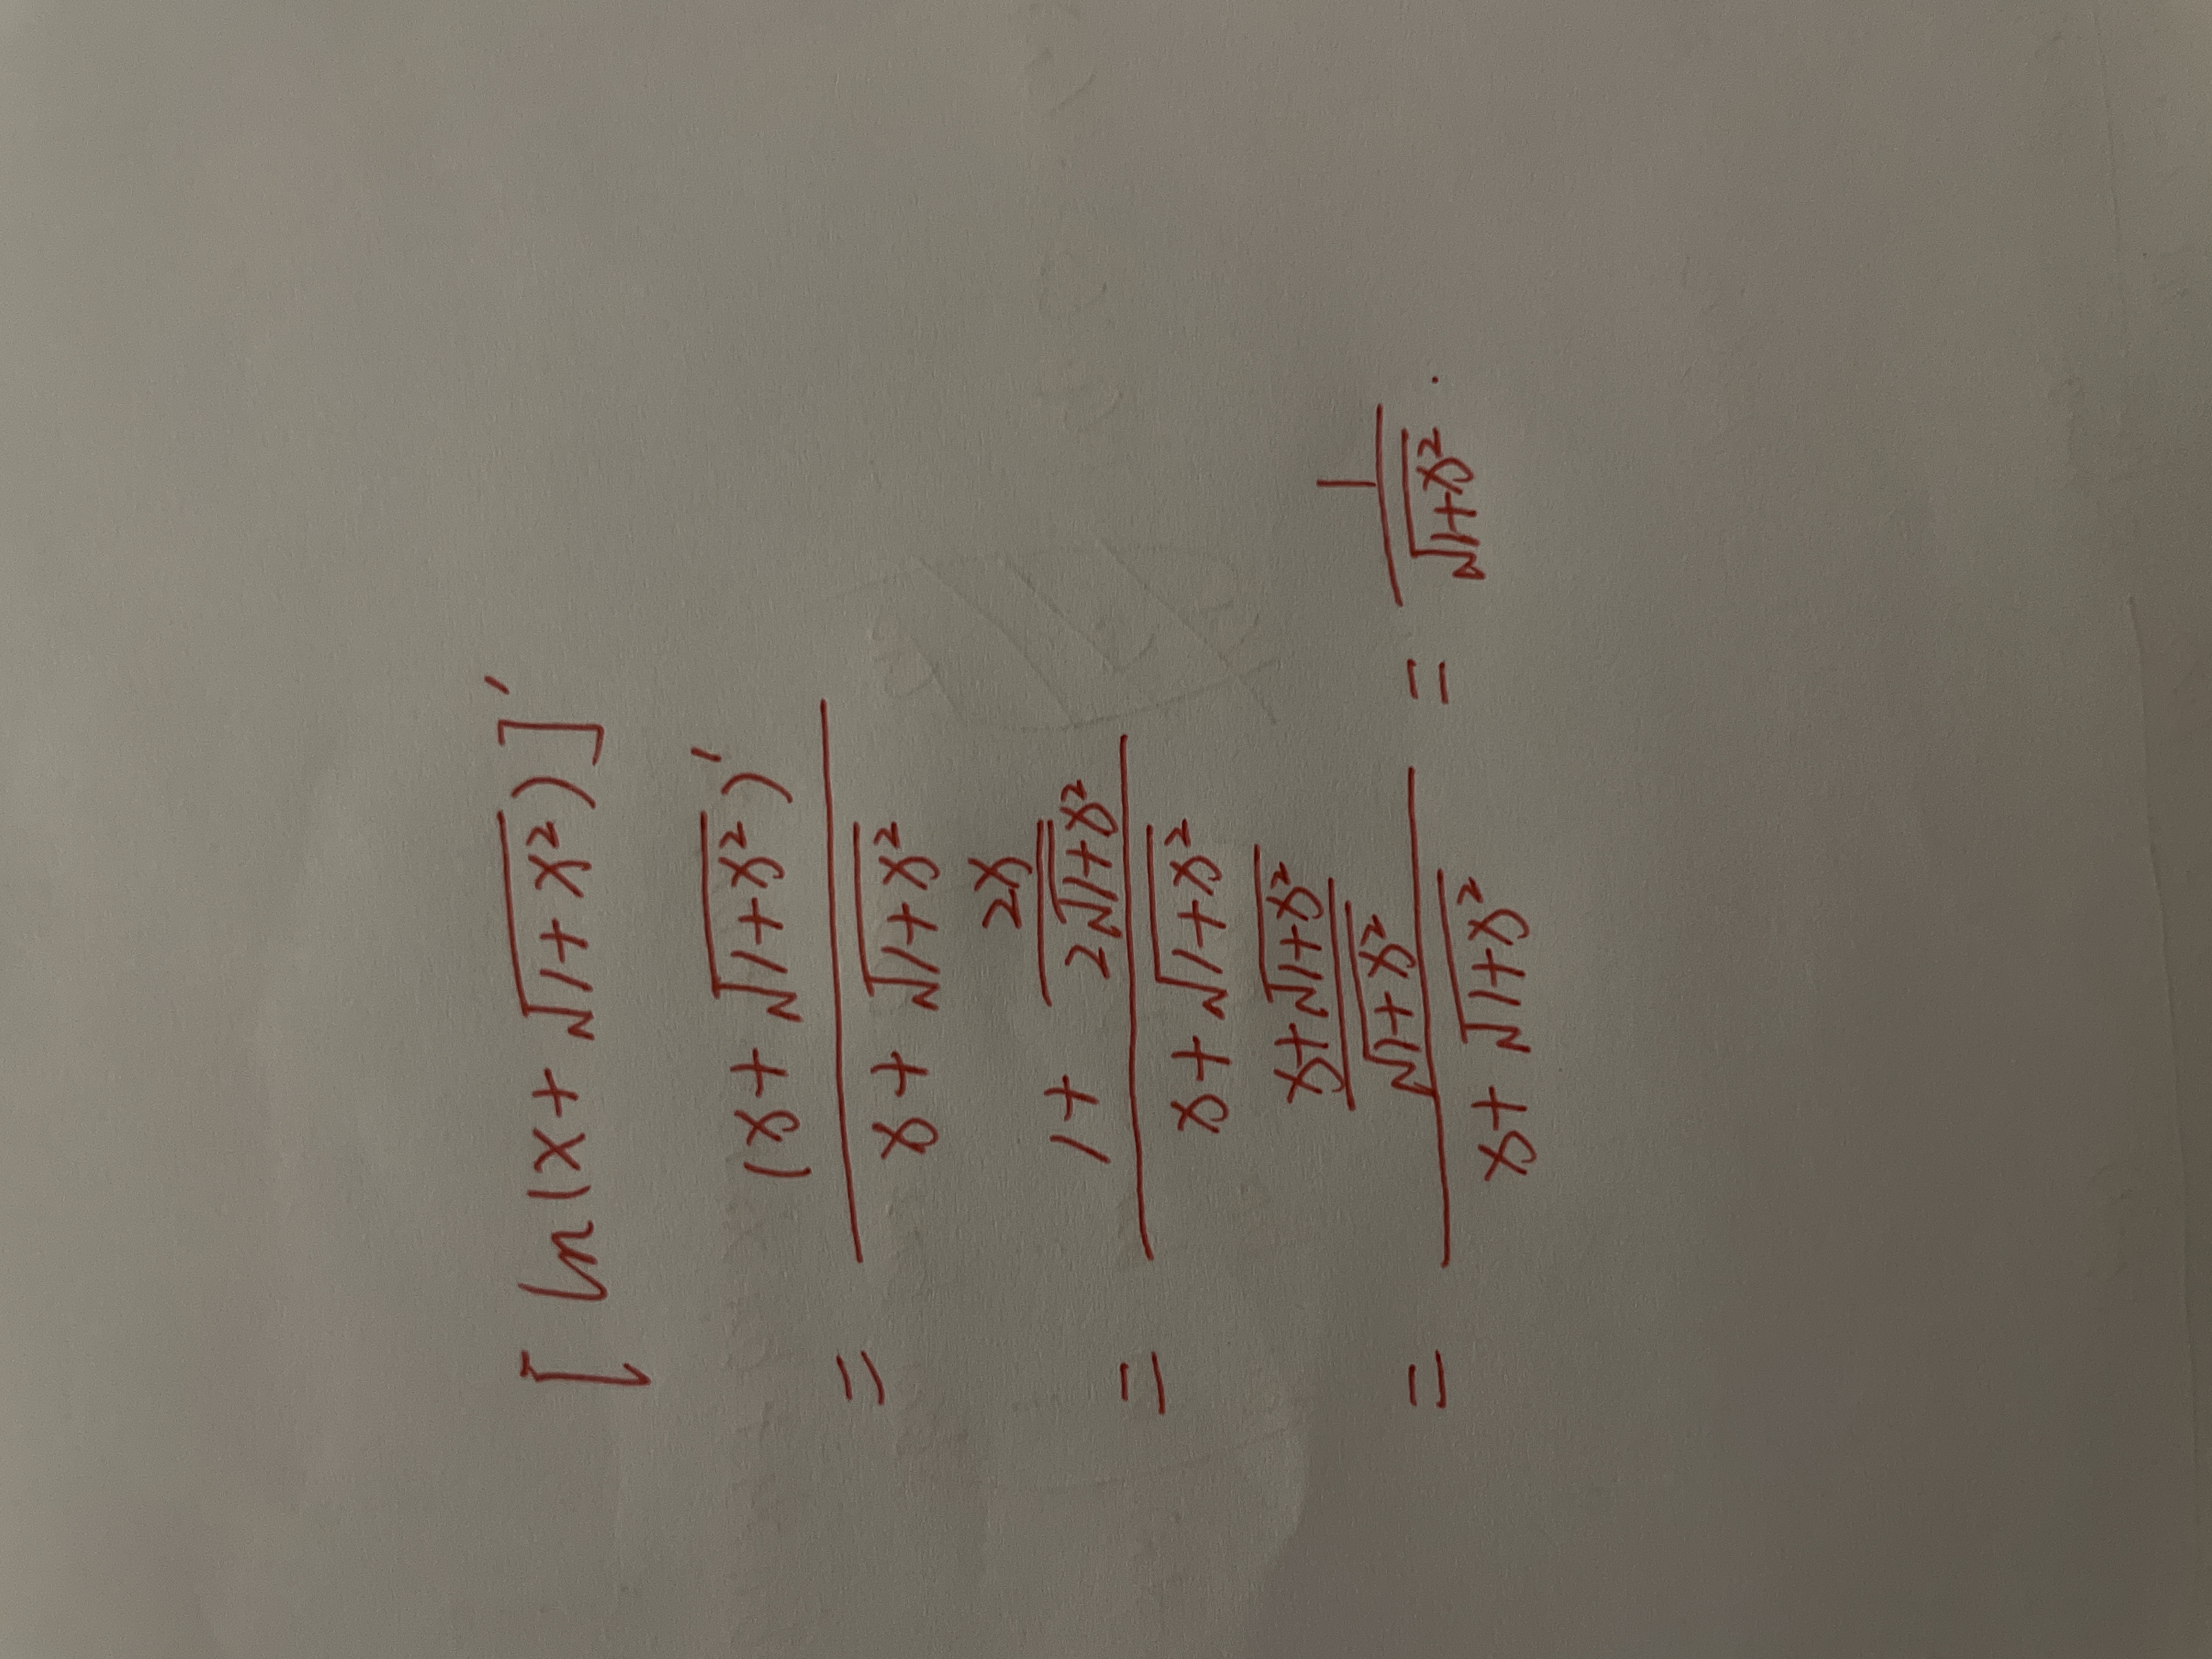 [ln(x+√(1+x²))]'
= (x+√(1+x²))' / (x+√(1+x²))
= (1+ 2x/(2√(1+x²))) / (x+√(1+x²))
= ((x+√(1+x²))/√(1+x²)) / (x+√(1+x²)) = 1/√(1+x²).